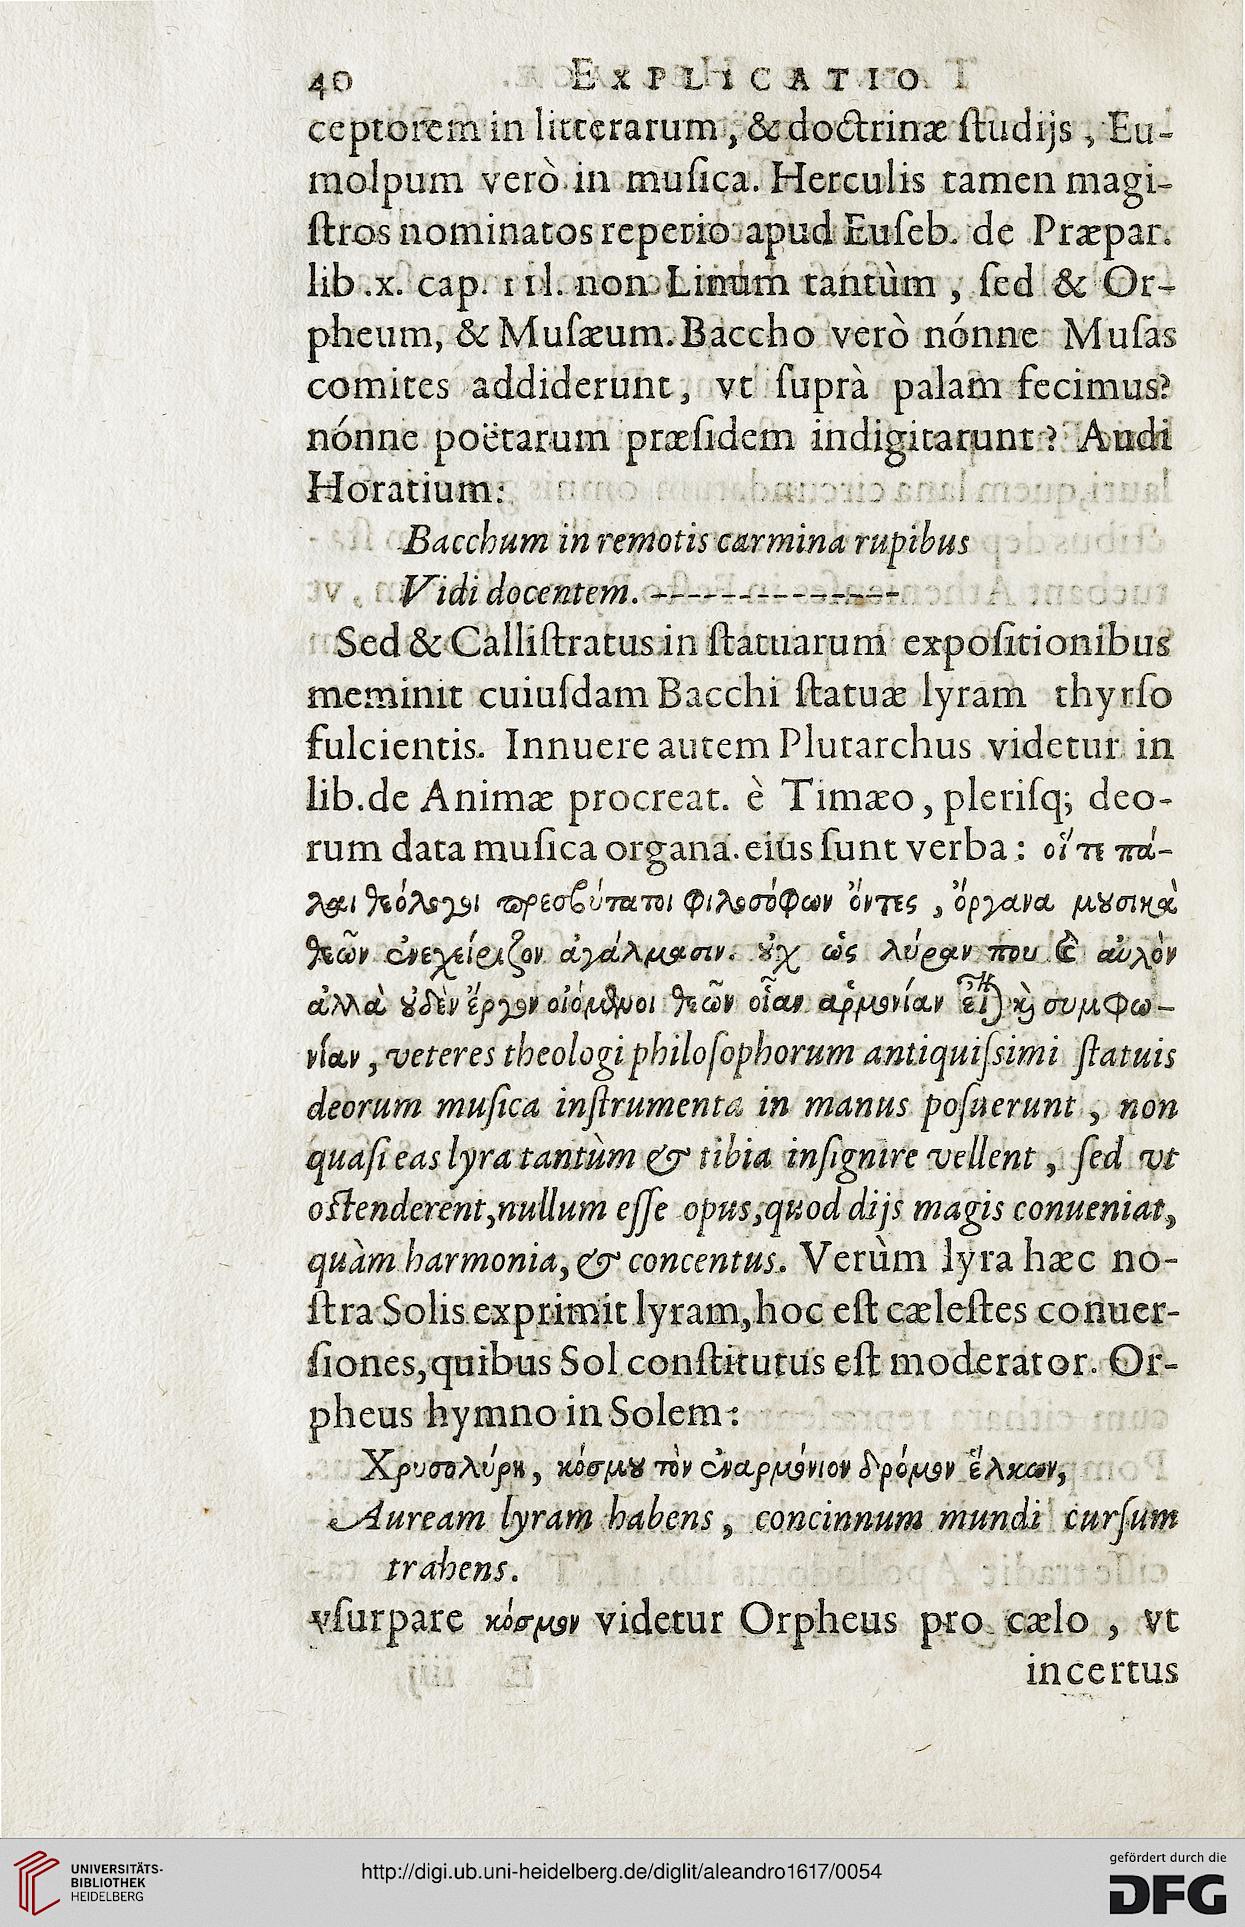 40 EXPLICATIO
ceptorem in litterarum, & doctrinæ ſtudijs, Eu-
molpum verò in muſica. Herculis tamen magi-
ſtros nominatos reperio apud Euſeb. de Præpar.
lib.x. cap. 111. non Linum tantùm, ſed & Or-
pheum, & Muſæum. Baccho verò nónne Muſas
comites addiderunt, vt ſuprà palam fecimus?
nónne poëtarum præſidem indigitarunt? Audi
Horatium:
Bacchum in remotis carmina rupibus
Vidi docentem. --------------
Sed & Calliſtratus in ſtatuarum expoſitionibus
meminit cuiuſdam Bacchi ſtatuæ lyram thyrſo
fulcientis. Innuere autem Plutarchus videtur in
lib. de Animæ procreat. è Timæo, pleriſq; deo-
rum data muſica organa. eius ſunt verba: οἵ τε πά-
λαι θεόλογοι πρεσβύτατοι φιλοσόφων ὄντες, ὄργανα μουσικὰ
θεῶν ἐνεχείριζον ἀγάλμασιν. οὐχ ὡς λύραν που καὶ αὐλὸν
ἀλλὰ οὐδὲν ἔργον οἰόμενοι θεῶν οἷαν ἁρμονίαν εἶναι καὶ συμφω-
νίαν, veteres theologi philoſophorum antiquiſsimi ſtatuis
deorum muſica inſtrumenta in manus poſuerunt, non
quaſi eas lyra tantùm & tibia inſignire vellent, ſed vt
oſtenderent, nullum eſſe opus, quod dijs magis conueniat,
quàm harmonia, & concentus. Verùm lyra hæc no-
ſtra Solis exprimit lyram, hoc eſt cæleſtes conuer-
ſiones, quibus Sol conſtitutus eſt moderator. Or-
pheus hymno in Solem:
Χρυσολύρη, κόσμου τὸν ἐναρμόνιον δρόμον ἕλκων,
Auream lyram habens, concinnum mundi curſum
trahens.
vſurpare κόσμον videtur Orpheus pro cælo, vt
incertus
UNIVERSITÄTS-
BIBLIOTHEK
HEIDELBERG
http://digi.ub.uni-heidelberg.de/diglit/aleandro1617/0054
gefördert durch die
DFG